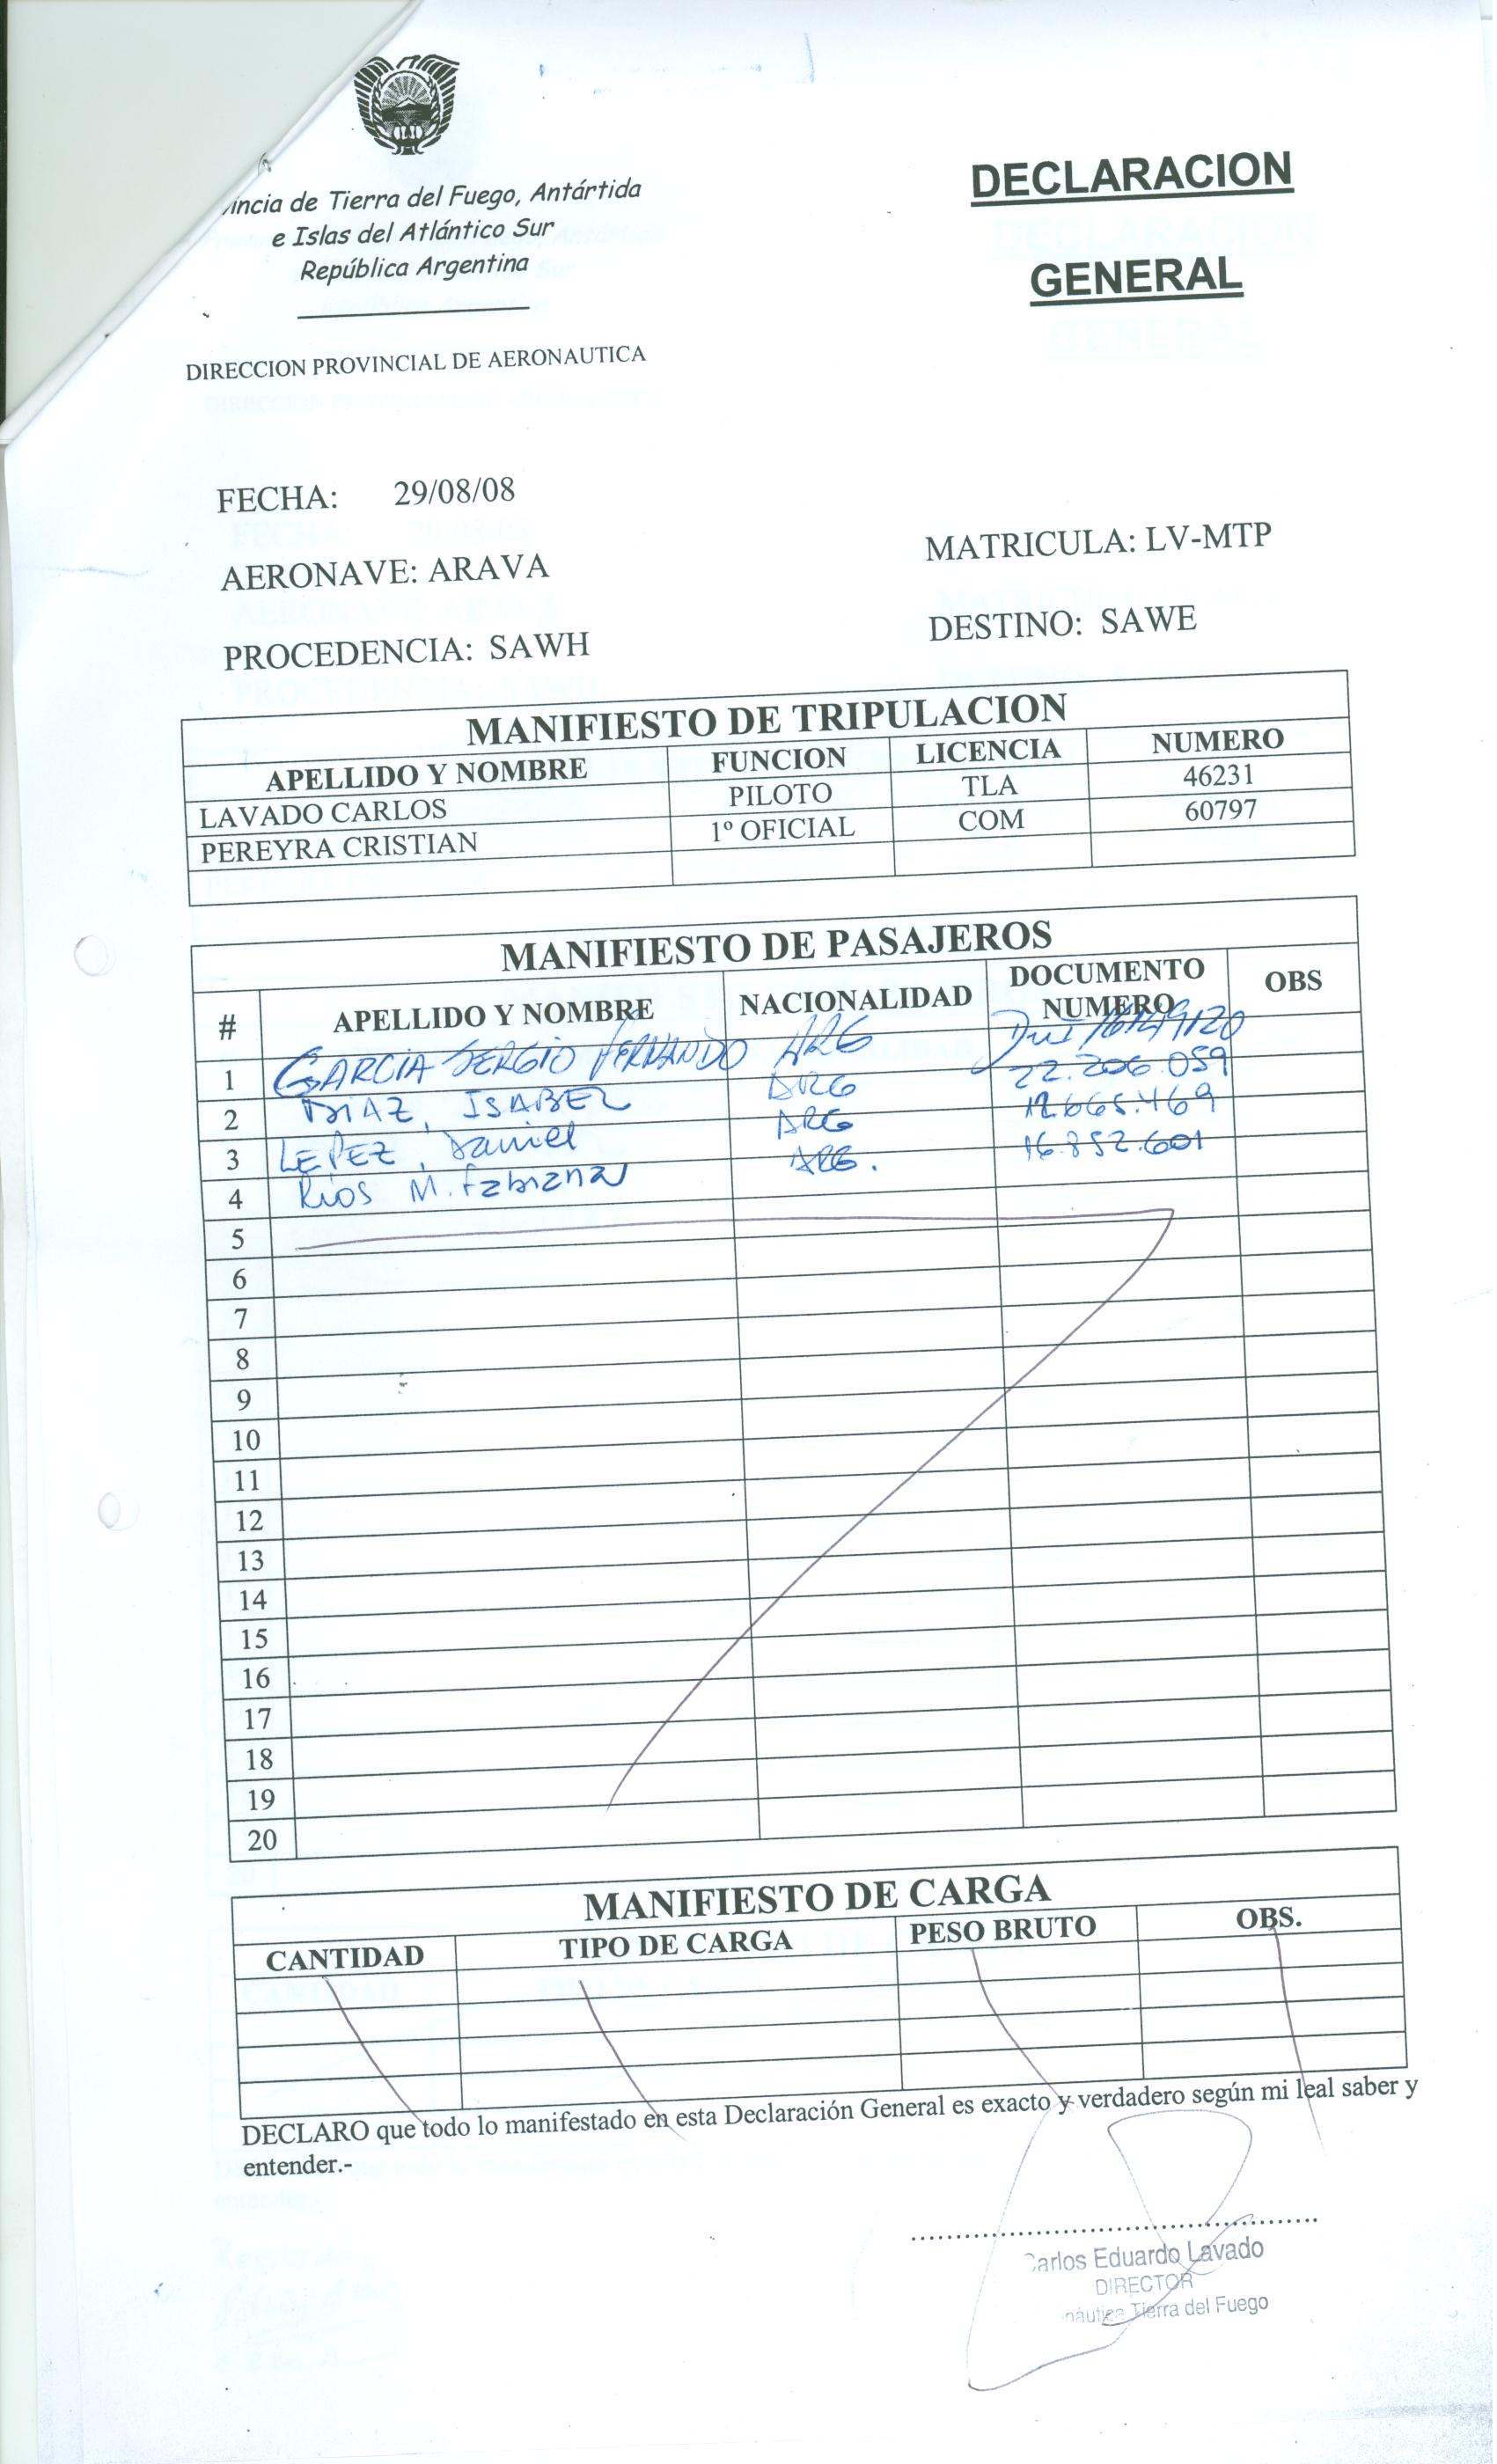 incia de Tierra del Fuego, Antártida
e Islas del Atlántico Sur
República Argentina
DECLARACION
GENERAL
DIRECCION PROVINCIAL DE AERONAUTICA
FECHA: 29/08/08
AERONAVE: ARAVA MATRICULA: LV-MTP
PROCEDENCIA: SAWH DESTINO: SAWE
MANIFIESTO DE TRIPULACION
APELLIDO Y NOMBRE FUNCION LICENCIA NUMERO
LAVADO CARLOS PILOTO TLA 46231
PEREYRA CRISTIAN 1º OFICIAL COM 60797
MANIFIESTO DE PASAJEROS
# APELLIDO Y NOMBRE NACIONALIDAD DOCUMENTO NUMERO OBS
1 GARCIA SERGIO FERNANDO ARG
2 DIAZ, ISABEL ARG 22.206.059
3 LEPEZ, Daniel ARG 12.665.469
4 Rios M. Fabiana ARG. 16.852.601
5
6
7
8
9
10
11
12
13
14
15
16
17
18
19
20
MANIFIESTO DE CARGA
CANTIDAD TIPO DE CARGA PESO BRUTO OBS.
DECLARO que todo lo manifestado en esta Declaración General es exacto y verdadero según mi leal saber y
entender.-
Carlos Eduardo Lavado
DIRECTOR
náutica Tierra del Fuego